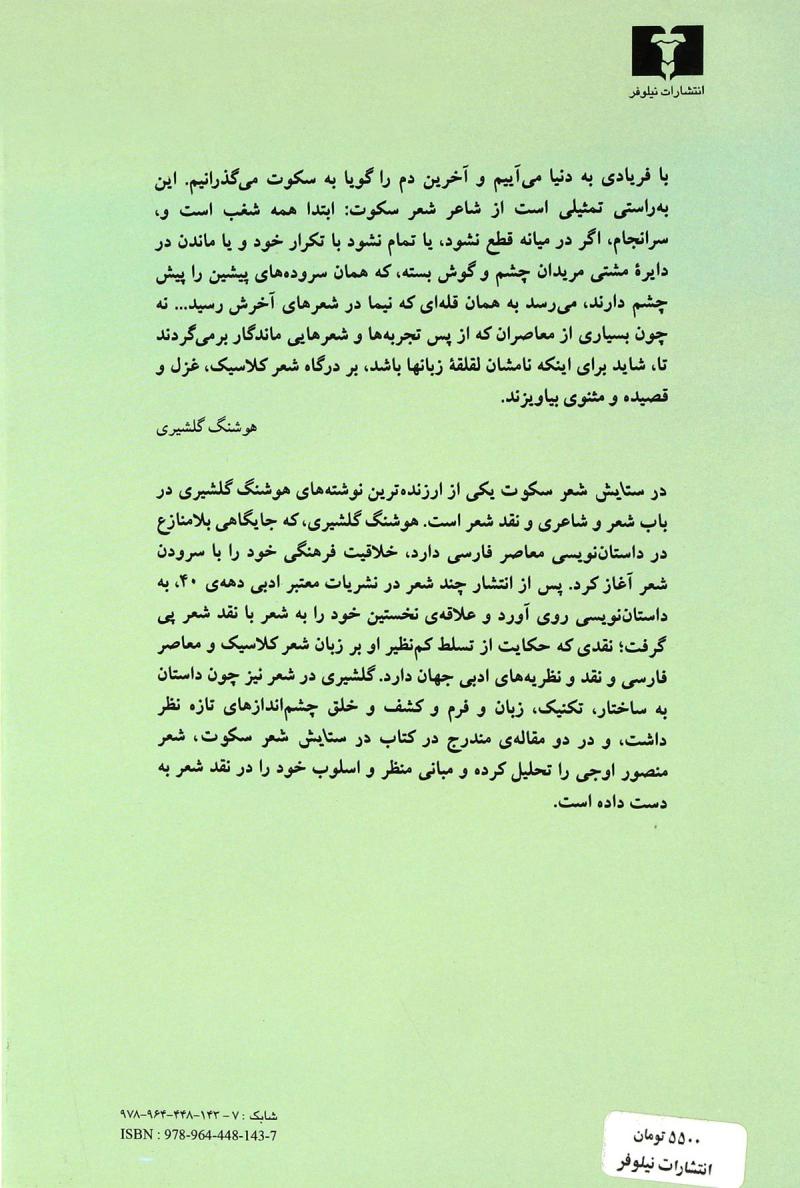 انتشارات نیلوفر
با فریادی به دنیا می‌آییم و آخرین دم را گویا به سکوت می‌گذرانیم. این
به‌راستی تمثیلی است از شاعر شعر سکوت: ابتدا همه شغب است و،
سرانجام، اگر در میانه قطع نشود، یا تمام نشود با تکرار خود و یا ماندن در
دایرهٔ مشتی مریدان چشم و گوش بسته، که همان سروده‌های پیشین را پیش
چشم دارند، می‌رسد به همان قله‌ای که نیما در شعرهای آخرش رسید... نه
چون بسیاری از معاصران که از پس تجربه‌ها و شعرهایی ماندگار برمی‌گردند
تا، شاید برای اینکه نامشان لقلقهٔ زبانها باشد، بر درگاه شعر کلاسیک، غزل و
قصیده و مثنوی بیاویزند.
هوشنگ گلشیری
در ستایش شعر سکوت یکی از ارزنده‌ترین نوشته‌های هوشنگ گلشیری در
باب شعر و شاعری و نقد شعر است. هوشنگ گلشیری، که جایگاهی بلامنازع
در داستان‌نویسی معاصر فارسی دارد، خلاقیت فرهنگی خود را با سرودن
شعر آغاز کرد. پس از انتشار چند شعر در نشریات معتبر ادبی دهه‌ی ۴۰، به
داستان‌نویسی روی آورد و علاقه‌ی نخستین خود را به شعر با نقد شعر پی
گرفت؛ نقدی که حکایت از تسلط کم‌نظیر او بر زبان شعر کلاسیک و معاصر
فارسی و نقد و نظریه‌های ادبی جهان دارد. گلشیری در شعر نیز چون داستان
به ساختار، تکنیک، زبان و فرم و کشف و خلق چشم‌اندازهای تازه نظر
داشت، و در دو مقاله‌ی مندرج در کتاب در ستایش شعر سکوت، شعر
منصور اوجی را تحلیل کرده و مبانی منظر و اسلوب خود را در نقد شعر به
دست داده است.
شابک : ۷-۱۴۳-۴۴۸-۹۶۴-۹۷۸
ISBN : 978-964-448-143-7
۵۵۰۰ تومان
انتشارات نیلوفر